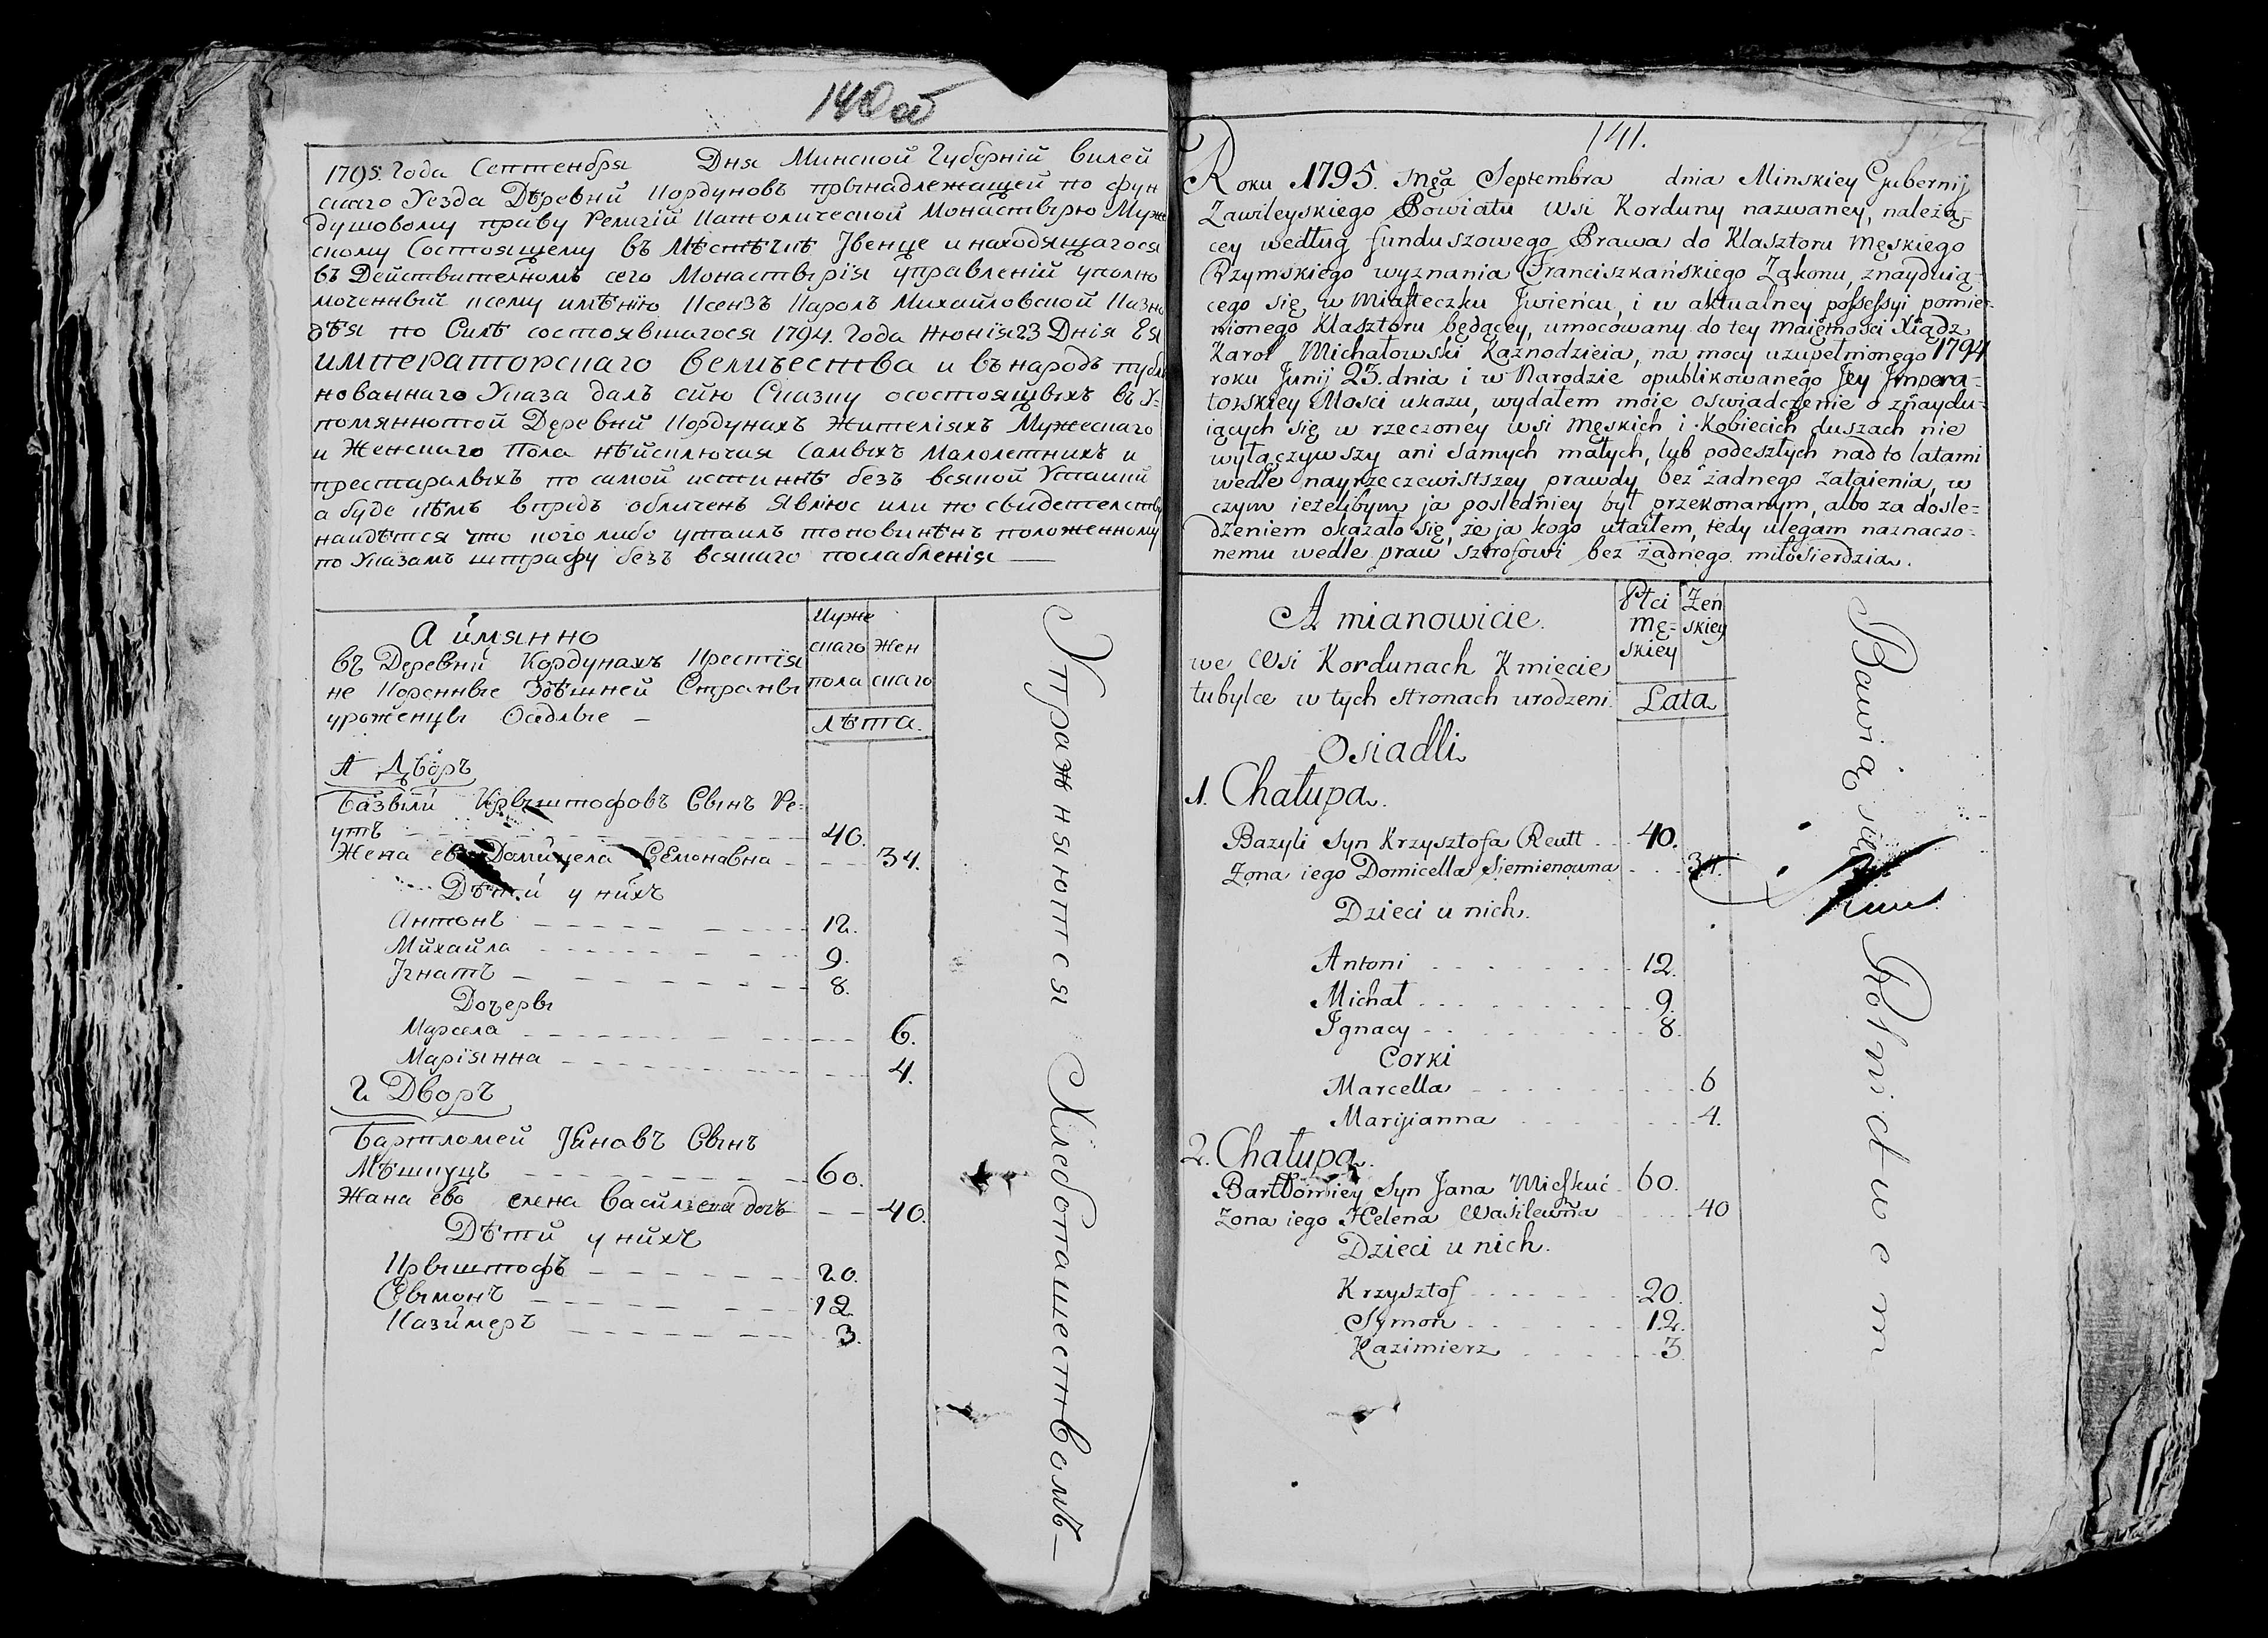 140 об
1795. Года Септенбря Дня Минской Губерніи Вилей
скаго Уезда Дѣревни Кордуновъ прынадлежащей по фун
душовому праву Религіи Католической Монастырю Муже
скому Состоящему въ Мѣстѣчкѣ Јвенце и находящагося
въ Действителномъ сего Монастырія управленіи уполно
моченный ксему имѣнію Ксензъ Кароль Михаиловской Казно
дѣя по Силѣ состоявшагося 1794. Года Июнія 23 Днія Ея
императорскаго величества и въ народъ публи
кованнаго Указа далъ сию Сказку осостоящыхъ въ У-
помянностой Деревни Кордунахъ Жителіяхъ Мужескаго
и Женскаго Пола нѣисключая Самыхъ Малолетникъ и
престарлыхъ по самой истиннѣ безъ всякой Утаики
а буде кѣмъ впредъ обличенъ Явлюс или по свидетелству
наидѣтся что кого либо утаилъ то повинѣнъ положенному
по Указамъ штрафу безъ всякаго послабленія —
А имянно
въ Деревни Кордунахъ Крестія
не Коренные Здѣшней Страны
уроженцы Осѣдлые —
Муже
скаго
пола
жен
скаго
лѣта.
А Дворъ
Базыли Крыштофовъ Сынъ Ре-
утъ 40.
Жена ево Домицела Сѣмоновна 34.
Дѣти у нихъ
Антонъ 12.
Михаила 9.
Јгнатъ 8.
Дочеры
Марсела 6.
Маріянна 4.
2 Дворъ
Бартломей Јановъ Сынъ
Мѣшкуцъ 60.
Жана ево елена Василева дочъ 40.
Дѣти у нихъ
Крыштофъ 20.
Сымонъ 12.
Казимеръ 3.
Упражняются Хлебопашествомъ —
141.
Roku 1795. Mca Septembra dnia Minskiey Gubernij
Zawileyskiego Powiatu Wsi Korduny nazwaney, należą-
cey według funduszowego Prawa do Klasztoru Męskiego
Rzymskiego wyznania Franciszkańskiego Zakonu, znayduią-
cego się w Miasteczku Jwieńcu, i w aktualney possessyi pomie-
nionego Klasztoru będącey, umocowany do tey maiętności Xiądz
Karol Michałowski Kaznodzieia, na mocy uzupełnionego 1794
roku Junij 23. dnia i w Narodzie opublikowanego Jey Jmpera-
torskiey Mości ukazu, wydałem moie oświadczenie o znaydu-
iących się w rzeczoney wsi Męskich i Kobiecich duszach nie
wyłączywszy ani samych małych, lub podeszłych nad to latami
wedle nayrzeczewistszey prawdy bez żadnego zataienia, w
czym ieżelibym ja pośledniey był przekonanym, albo za dosle-
dzeniem okazało się, że ja kogo utaiłem, tedy ulegam naznaczo-
nemu wedle praw sztrofowi bez żadnego miłosierdzia.
A mianowicie.
we Wsi Kordunach Kmiecie
tubylce w tych stronach urodzeni.
Płci
Mę-
skiey
Żeń
skiey
Lata
Osiadli
1. Chałupa.
Bazyli Syn Krzysztofa Reutt 40.
Żona iego Domicella Siemienowna 34.
Dzieci u nich.
Antoni 12.
Michał 9.
Jgnacy 8.
Corki
Marcella 6
Maryianna 4.
2. Chałupa.
Bartłomiey Syn Jana Mieszkuć 60.
Żona iego Helena Wasilewna 40
Dzieci u nich.
Krzysztof 20.
Symon 12.
Kazimierz 3
Bawią się Rolnictwem —